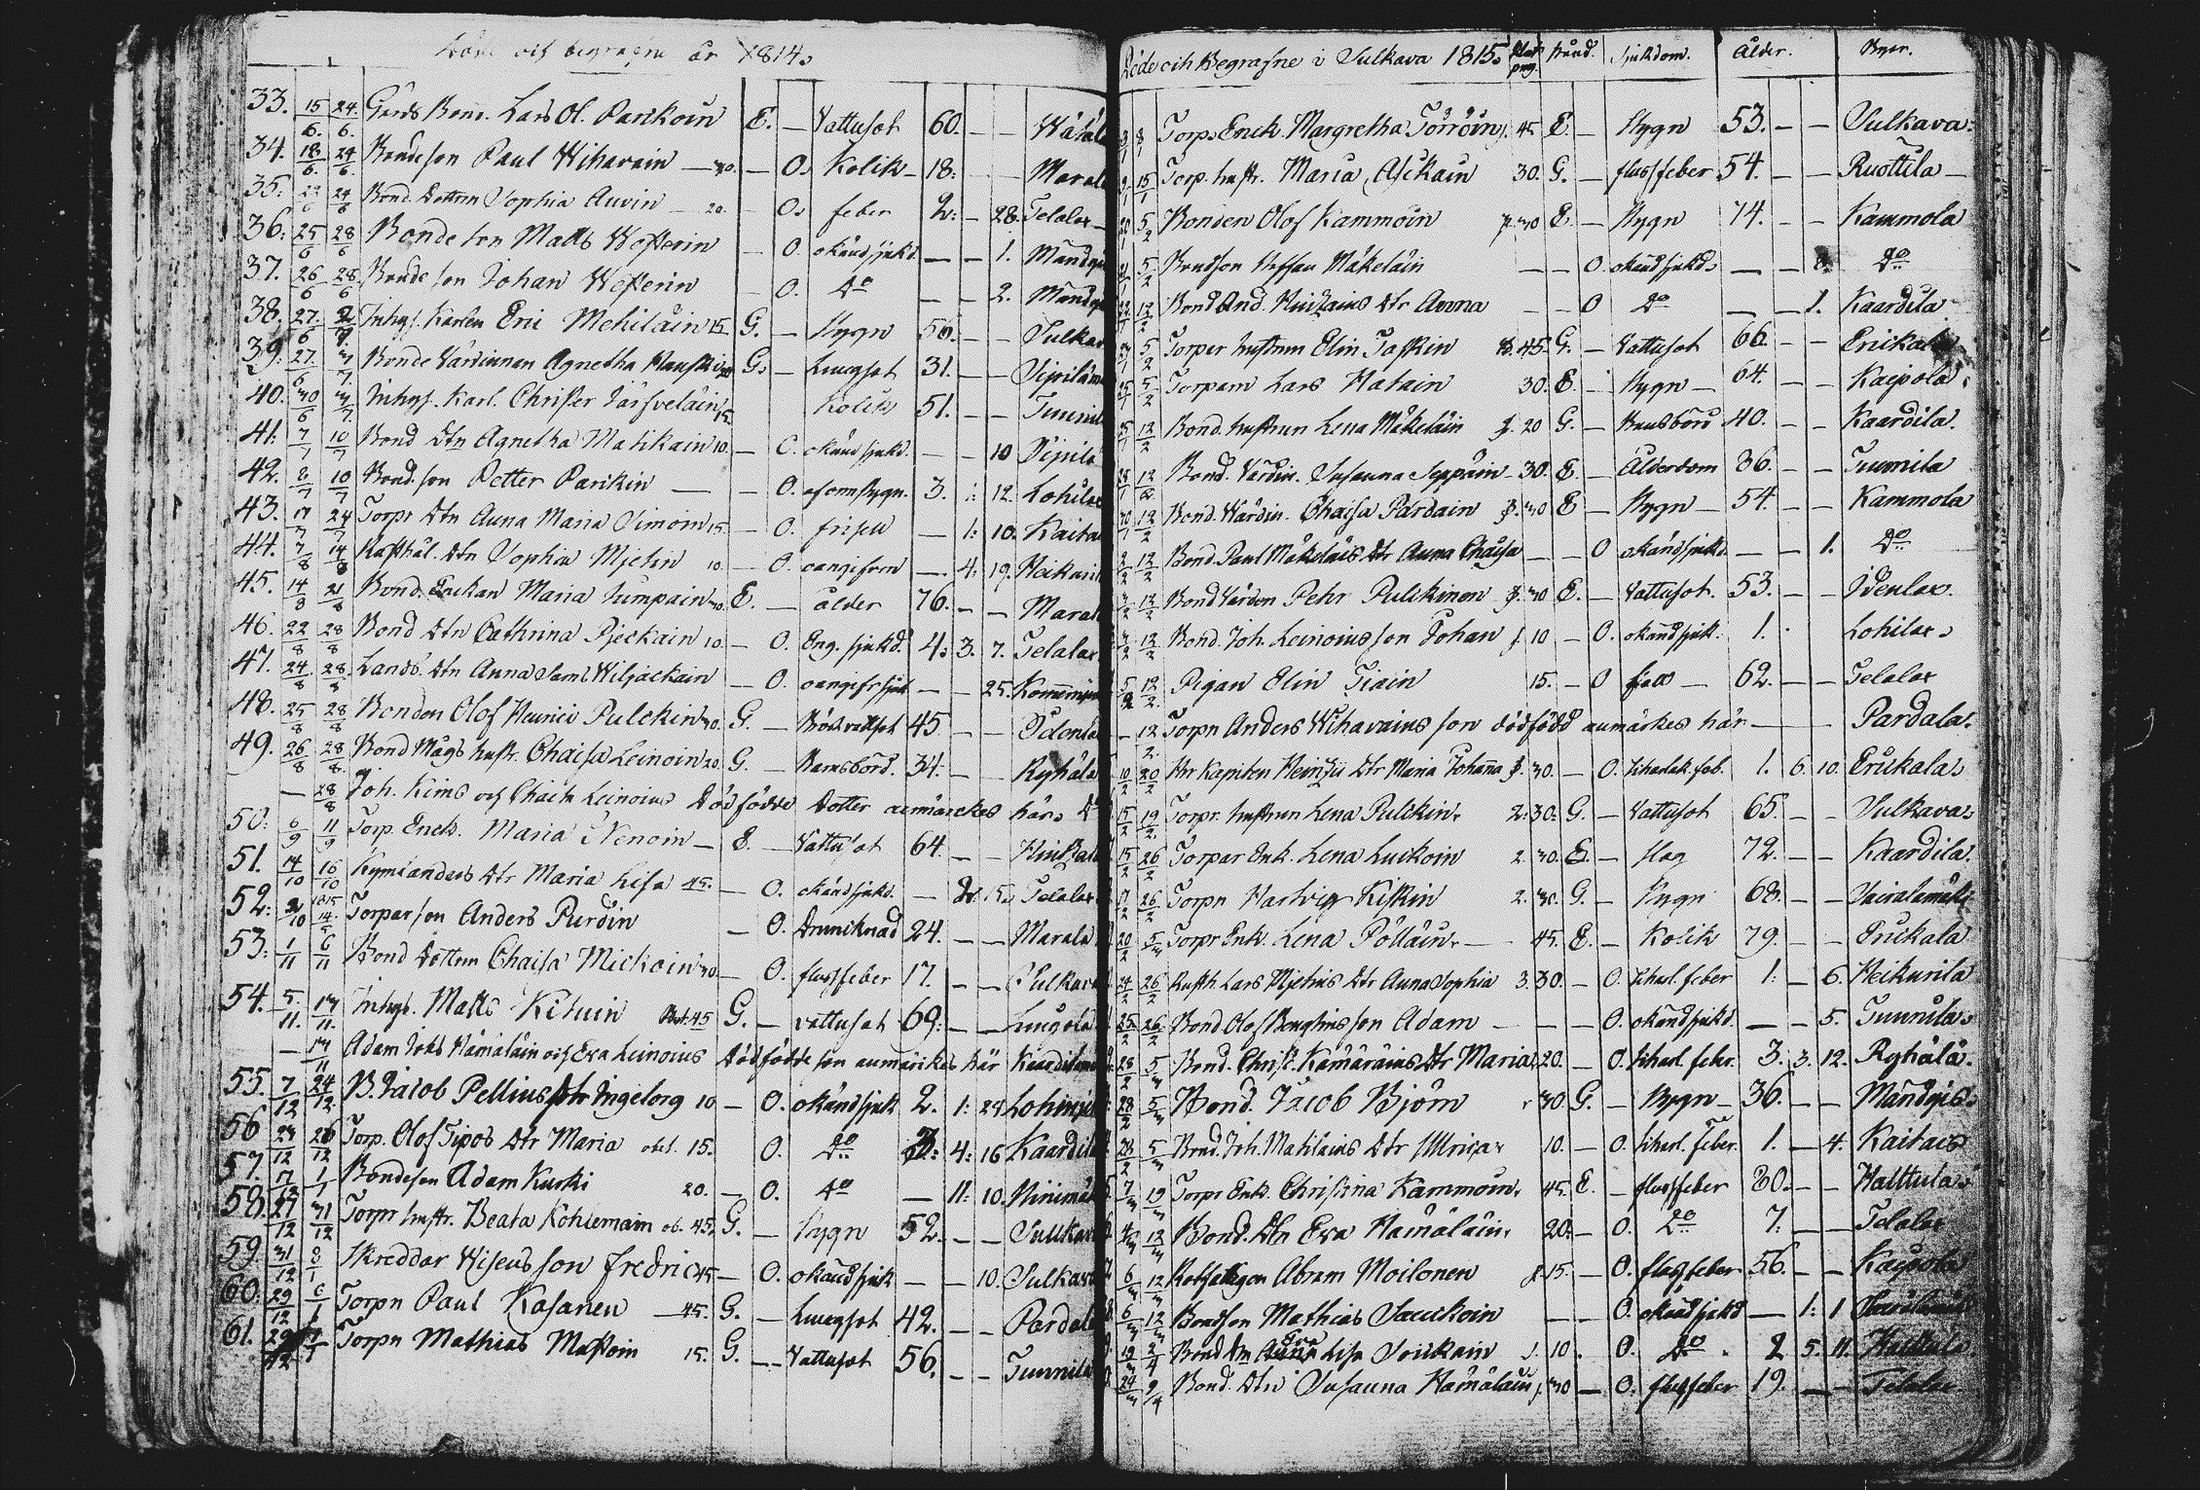 Döde och begragne år 1814.
33. 15/6 24/6 Gårds Bond. Lars Ol. Parikoin E. — Vattusot 60. — —
34. 18/6 24/6 Bondeson Paul Wihavain — 30. — O. Kolik — 18: — — Maral
35. 24/6 Bond. Dottren Sophia Auvin — 20. — O. feber 2: — 28. Telalax
36. 25/6 28/6 Bonde son Matts Westerin — O. okänd sjukd. — — 1. Mändy
37. 26/6 28/6 Bonde son Johan Westerin — O. Do — — 2. Mändy
38. 27/6 Inhys. Karlen Eric Mehiläin 15. G. — Stygn 50. — — Sulkav
39. 27/6 3/7 Bonde Värdinnan Agnetha G. — Lungsot 31. — —
40. 30/6 3/7 Inhys. Karl. Christer Järfveläin 15. Kolik 51. — — Tunnil
41. 7/7 10/7 Bond Dtn Agnetha Matikain 10. — O. okänd sjukd. — — 10
42. 8/7 10/7 Bond. son Petter Parikin — — O. af ormstygn. 3. : 12. Lohilax
43. 17/7 24/7 Torpr Dtn Anna Maria Simoin 15. — O. frisen — 1: 10. Kaita
44. 7/8 14/8 Rusthål. Dtn Sophia Mjelin 10 — O. oangifven — 4: 19. Heikuri
45. 14/8 21/8 Bond. Enckan Maria Jumpain 30. E. — ålder 76. — — Maral
46. 22/8 28/8 Bond Dtn Cathrina Pjeskain 10. — O. Eng. sjukd. 4: 3. 7. Telalax
47. 24/8 28/8 Lands. Dtn Anna Saml Wiljackain — O. oangifv sjuk — — 25.
48. 25/8 28/8 Bonden Olof Henric Pulckin 30. G. — 45 — —
49. 26/8 28/8 Bond Mågs hustr. Chaisa Leinoin 20. G. — Barnsbörd. 34. — — Ryhälä
— 28/8 Joh. Kims och Chaisa Leinoins Död födde Dotter anmärckes här. Do
50: 6/9 11/9 Torp. Enck. Maria Nenoin — E. — Vattusot 64. — —
51. 14/10 16/10 Kymiandars Dtr Maria Lisa 45. — O. okänd sjukd. — 2. 15. Telalax
52: 2/10 1815 14/5 Torpar son Anders Purdin — O. Druncknad 24. — — Marala
53: 1/11 6/11 Bond Dottren Chaisa Mickoin 30. — O. flussfeber 17. — — Sulkava
54. 5/11. 13/11. Inhys. Matts Kituin Obst. 45 G. — vattusot 69: — —
— 13/11 Adam Johs Hämäläin och Eva Leinoins Dödfödde son anmärckes här
55. 7/12 24/12 B. Jacob Pellins Dtr Ingeborg 10 — O. okänd sjuk 2. 1: 28
56 23/12 26/12 Torp. Olof Tipos Dtr Maria obst. 15. O. Do 3: 4: 16 Kaardil
57. 17/12 1/1 Bondeson Adam Kurki 20. — O. Do — 11: 10.
58. 27/12 31/12 Torpr hustr. Beata Kohlemain ob. 45. G. — stygn 52. — — Sullkav
59. 31/12 8/1 Skreddar Wisens son Fredric 45 — O. okänd sjuk — — 10. Sulkava
60: 29/12 6/1 Torpn Paul Kasanen — 45. G. — Lungsot 42. — — Pardal
61. 29/12 1/1 Torpn Mathias Mastoin 15. G. — Vattusot 56. — — Tunnila
Döde och Begrafne i Sulkava 1815. stånd. Sjukdom. Ålder. Byar.
3/1 8/1 Torps Enck. Margretha Törröin 45 E. — Stygn 53. — — Sulkava.
9/1 15/1 Torp. hustr. Maria Asikain 30. G. — flussfeber 54. — — Ruottila —
20/1 5/2 Bonden Olof Kammoin 30 E. — Stygn 74. — — Kammola
21/1 5/2 Bondson Steffan Mäkeläin — — O. okänd sjukd. — — 8. Do
22/1 12/2 Bond And. Dtr Anna — — O Do — — 1. Kaardila
23/1 5/2 Torper hustrun Elin Taskin 45. G. — Vattusot 66. — — Erikala
25/1 5/2 Torparn Lars Hatain 30. E. — Stygn — 64. — — Kaipola.
25/1 12/2 Bond. hustrun Lena Mäkeläin 20 G. — Barnsbörd 40. — — Kaardila.
28/1 12/2 Bond. Värdin. Susanna Seppäin — 30. E. — Ålderdom 86. — — Tunnila
30/1 12/2 Bond. Wärdin. Chaisa Pärdäin 30 E — Stygn — 54. — — Kammola
2/2 12/2 Bond. Paul Mäkeläins Dtr Anna Chaisa — — O okänd sjukd. — — 1. Do
3/2 12/2 Bond Värden Pehr Pulckinen 30 E. — Vattusot. 53. — — Idenlax.
3/2 12/2 Bond. Joh. Leinoins son Johan 10 — O. okänd sjuk. 1. Lohilax.
5/2 12/2 Pigan Elin Tiain 15. — O — 62. — — Telalax
— 12/2 Torpn Anders Wihavains son dödfödd anmärkes här — — — Pardala.
10/2 20/2 Hr Kapiten Dtr Maria Johanna 30. — O. Scharlak. feb. 1. 6. 10. Erickala.
15/2 19/2 Torpr. hustrun Lena Pulckin. 2. 30. G. — Vattusot 65. — — Sulkava.
15/2 26/2 Torpar Enk. Lena Luckoin 2. 30. E. — Slag 72. — — Kaardila.
17/2 26/2 Torpn Hartvig Kiskin 2. 30. G. — Stygn 68. — —
20/2 5/3 Torpr Enk. Lena Pölläin. — 45. E. — Kolik 79. — — Erickala
24/2 26/2 Rusth. Lars Mjelins Dtr Anna Sophia 3. 30. — O. Scharl. feber 1: — 6. Heikurila
25/2 26/2 Bond. Olof Bengtins son Adam — — — O. okänd sjukd. — — 5. Tunnila.
28/2 5/3 Bond. Christ. Kämäräins Dtr Maria 20. — O. Scharl. feber. 3. 3. 12. Ryhälä.
28/2 5/3 Bond. Jacob Björn 30. G. — Stygn — 36. — — Mändyis.
28/2 5/3 Bond. Joh. Matilains Dtr Ulrica. 10. — O. Scharl. feber. 1. — 4. Kaitais
7/3 19/3 Torpr Enk. Christina Kammoin. 45. E. — flussfeber 80. — — Halttula.
12/3 Bond. Dtr Eva Hämäläin. 20. — O. Do 7. — — Telalax
6/3 12/3 Abram Moilonen 15. — O. flussfeber 56. — — Kaipola
6/3 12/3 Bondson Mathias Sauckoin — — O. okänd sjukd — 1: 1
19/3 2/4 Bond Dtn Eva Lisa Soickain 10. O. Do 2 5. 11. Halttula.
24/3 9/4 Bond. Dtn Susanna Hämäläin 30 — O. flussfeber 19. — — Telalax